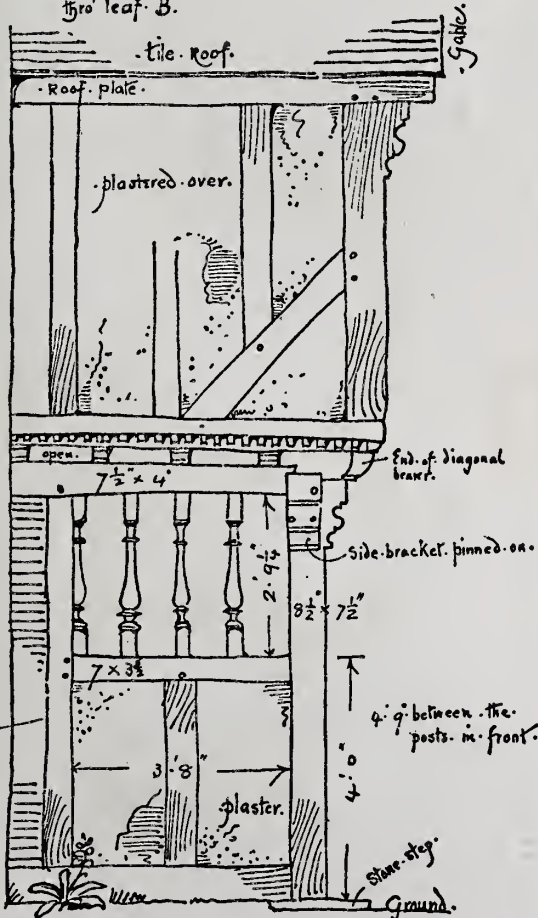 thro' leaf. B.
Gable.
tile. Roof.
Roof. plate.
plastered. over.
open.
7 1/2" x 4"
End. of. diagonal
bearer.
side. bracket. pinned. on.
2'. 9 1/4"
8 1/2" x 7 1/2"
7 x 3 1/2
4'. 9" between. the.
posts. in. front.
3'. 8"
4'. 0"
plaster.
stone. step.
Ground.